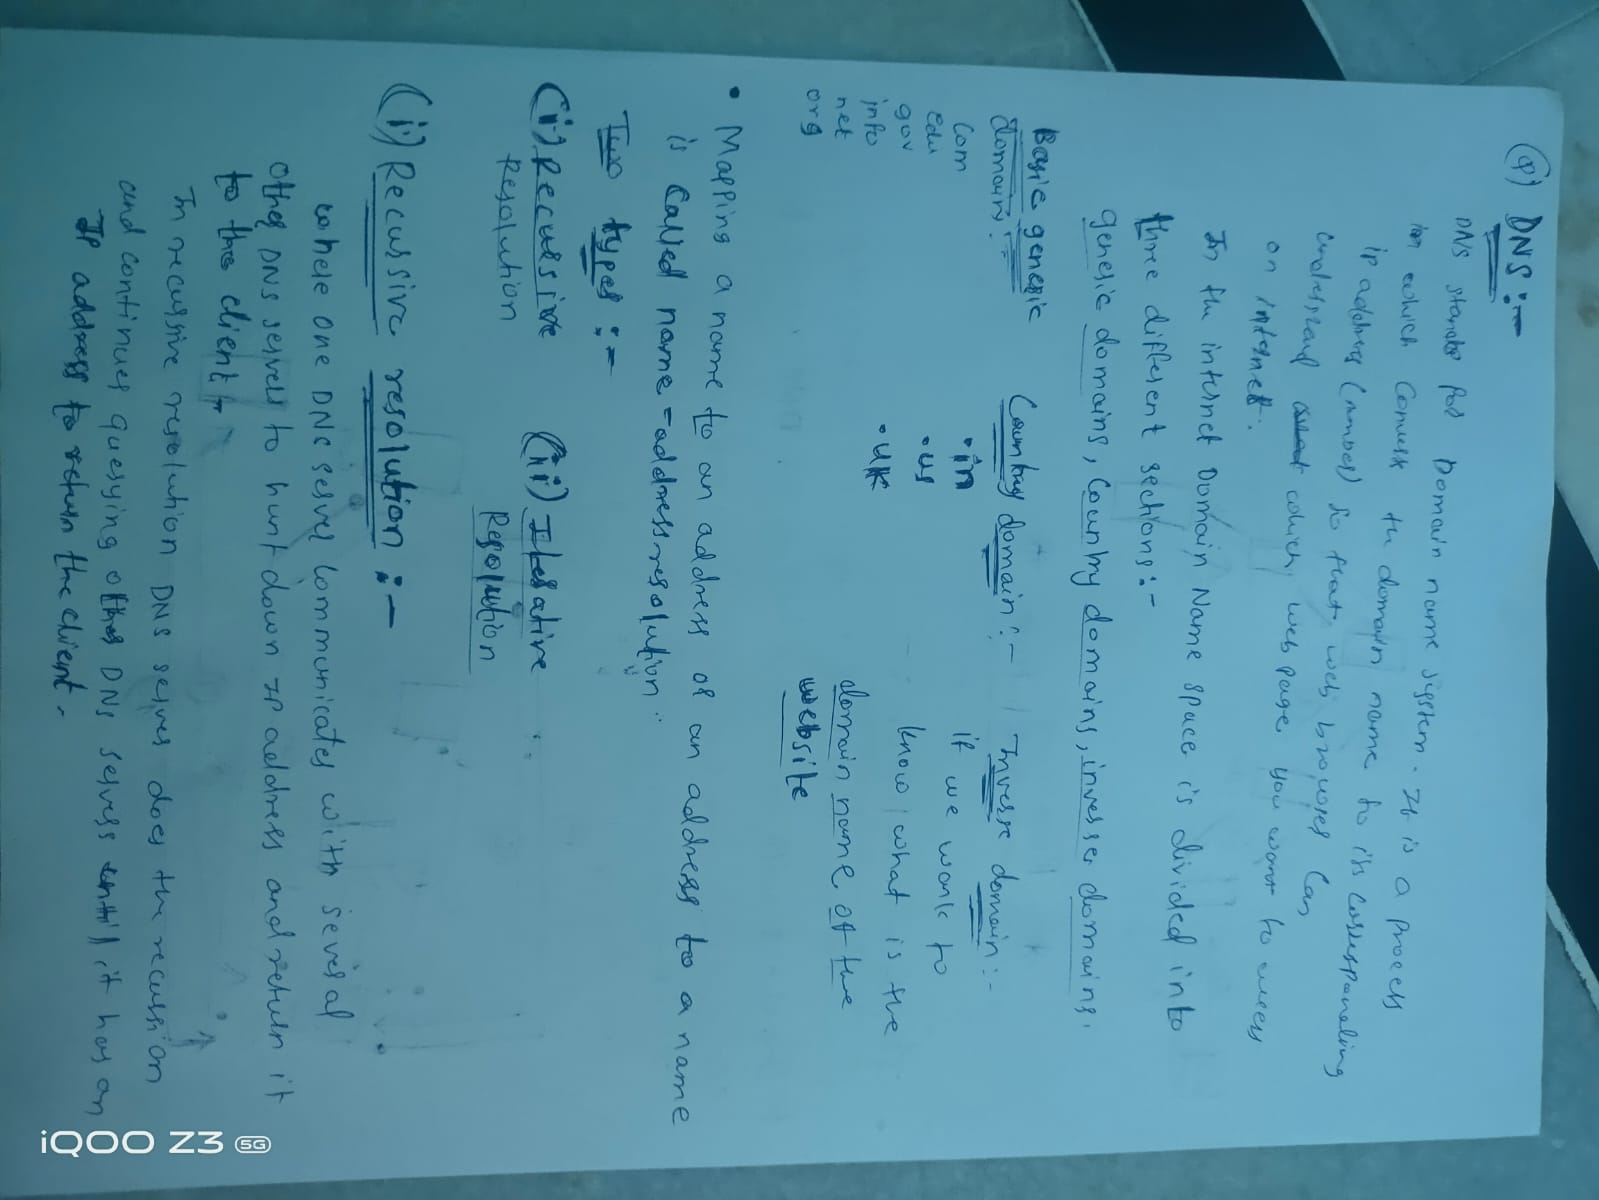 (Q) DNS :-
DNS stands for Domain name system. It is a process
in which Convert the domain name to its corresponding
ip address (number) so that web browser can
understand which web page you want to access
on internet.
In the internet Domain Name space is divided into
three different sections :-
generic domains, Country domains, inverser domains.
Basic generic
domain :-
Com
Edu
gov
info
net
org
Country domain :-
.in
.us
.uk
Inverse domain :-
if we want to
know what is the
domain name of the
website
• Mapping a name to an address or an address to a name
is Called name-address resolution.
Two types :-
(i) Recursive
Resolution
(ii) Iterative
Resolution
(i) Recursive resolution :-
where one DNS server Communicates with several
other DNS servers to hunt down IP address and return it
to the client.
In recursive resolution DNS server does the recursion
and continues querying other DNS servers until it has an
IP address to return the client.
iQOO Z3 5G